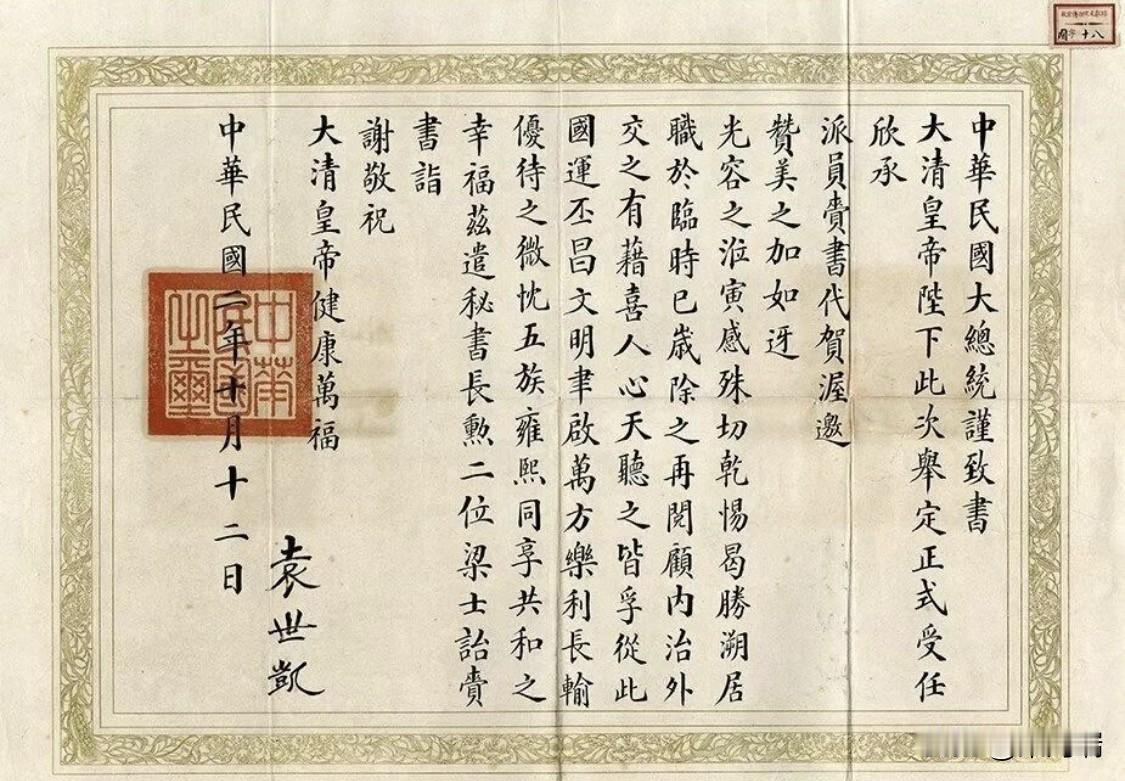 中華民國大總統謹致書
大清皇帝陛下此次舉定正式受任
欣承
派員賫書代賀渥邀
贊美之加如迓
光容之涖寅感殊切乾惕曷勝溯居
職於臨時已歲除之再閱顧內治外
交之有藉喜人心天聽之皆孚從此
國運丕昌文明聿啟萬方樂利長輸
優待之微忱五族雍熙同享共和之
幸福茲遣秘書長勳二位梁士詒賫
書詣
謝敬祝
大清皇帝健康萬福
袁世凱
中華民國二年十月十二日
中華民國之璽
字十八